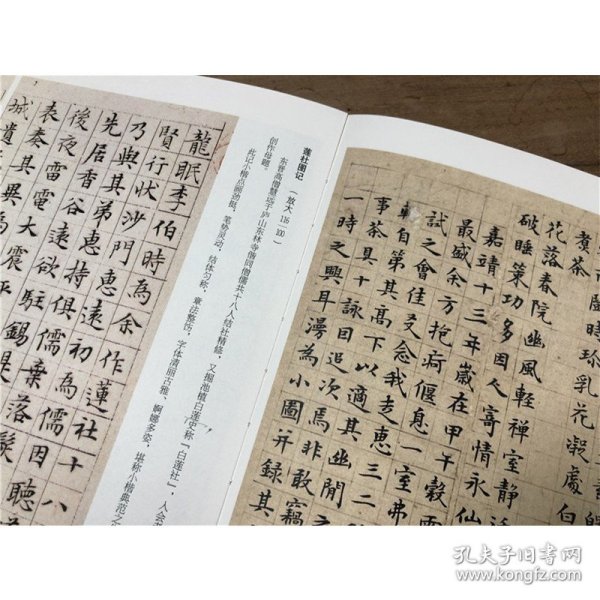 莲社图记（放大 116∶100）
东晋高僧慧远于庐山东林寺偕同僧儒共十八人结社精修，又掘池植白莲，史称『白莲社』，入会
创作母题。
此记小楷点画劲挺，笔势灵动，结体匀称，章法整饬，字体清丽古雅、婀娜多姿，堪称小楷典范之
龍眠李伯時為余作蓮社十八
賢行狀沙門惠遠初為儒因聽
乃與其弟惠持俱棄
先居香谷遠欲駐錫是
後夜雷電大
表奏
城
時珍乳花凝處白
煮茶
花落春院幽風輕禪室靜
破睡策功多因人寄情永仙
嘉靖十三年歲在甲午穀
最盛余方抱疴偃息一室弗
試之會佳友念我走惠三二
輒自第其高下以適其幽閒
事茶具十詠目追次焉非敢竊
一時之興耳漫為小圖并録其
孔夫子旧书网
www.kongfz.com